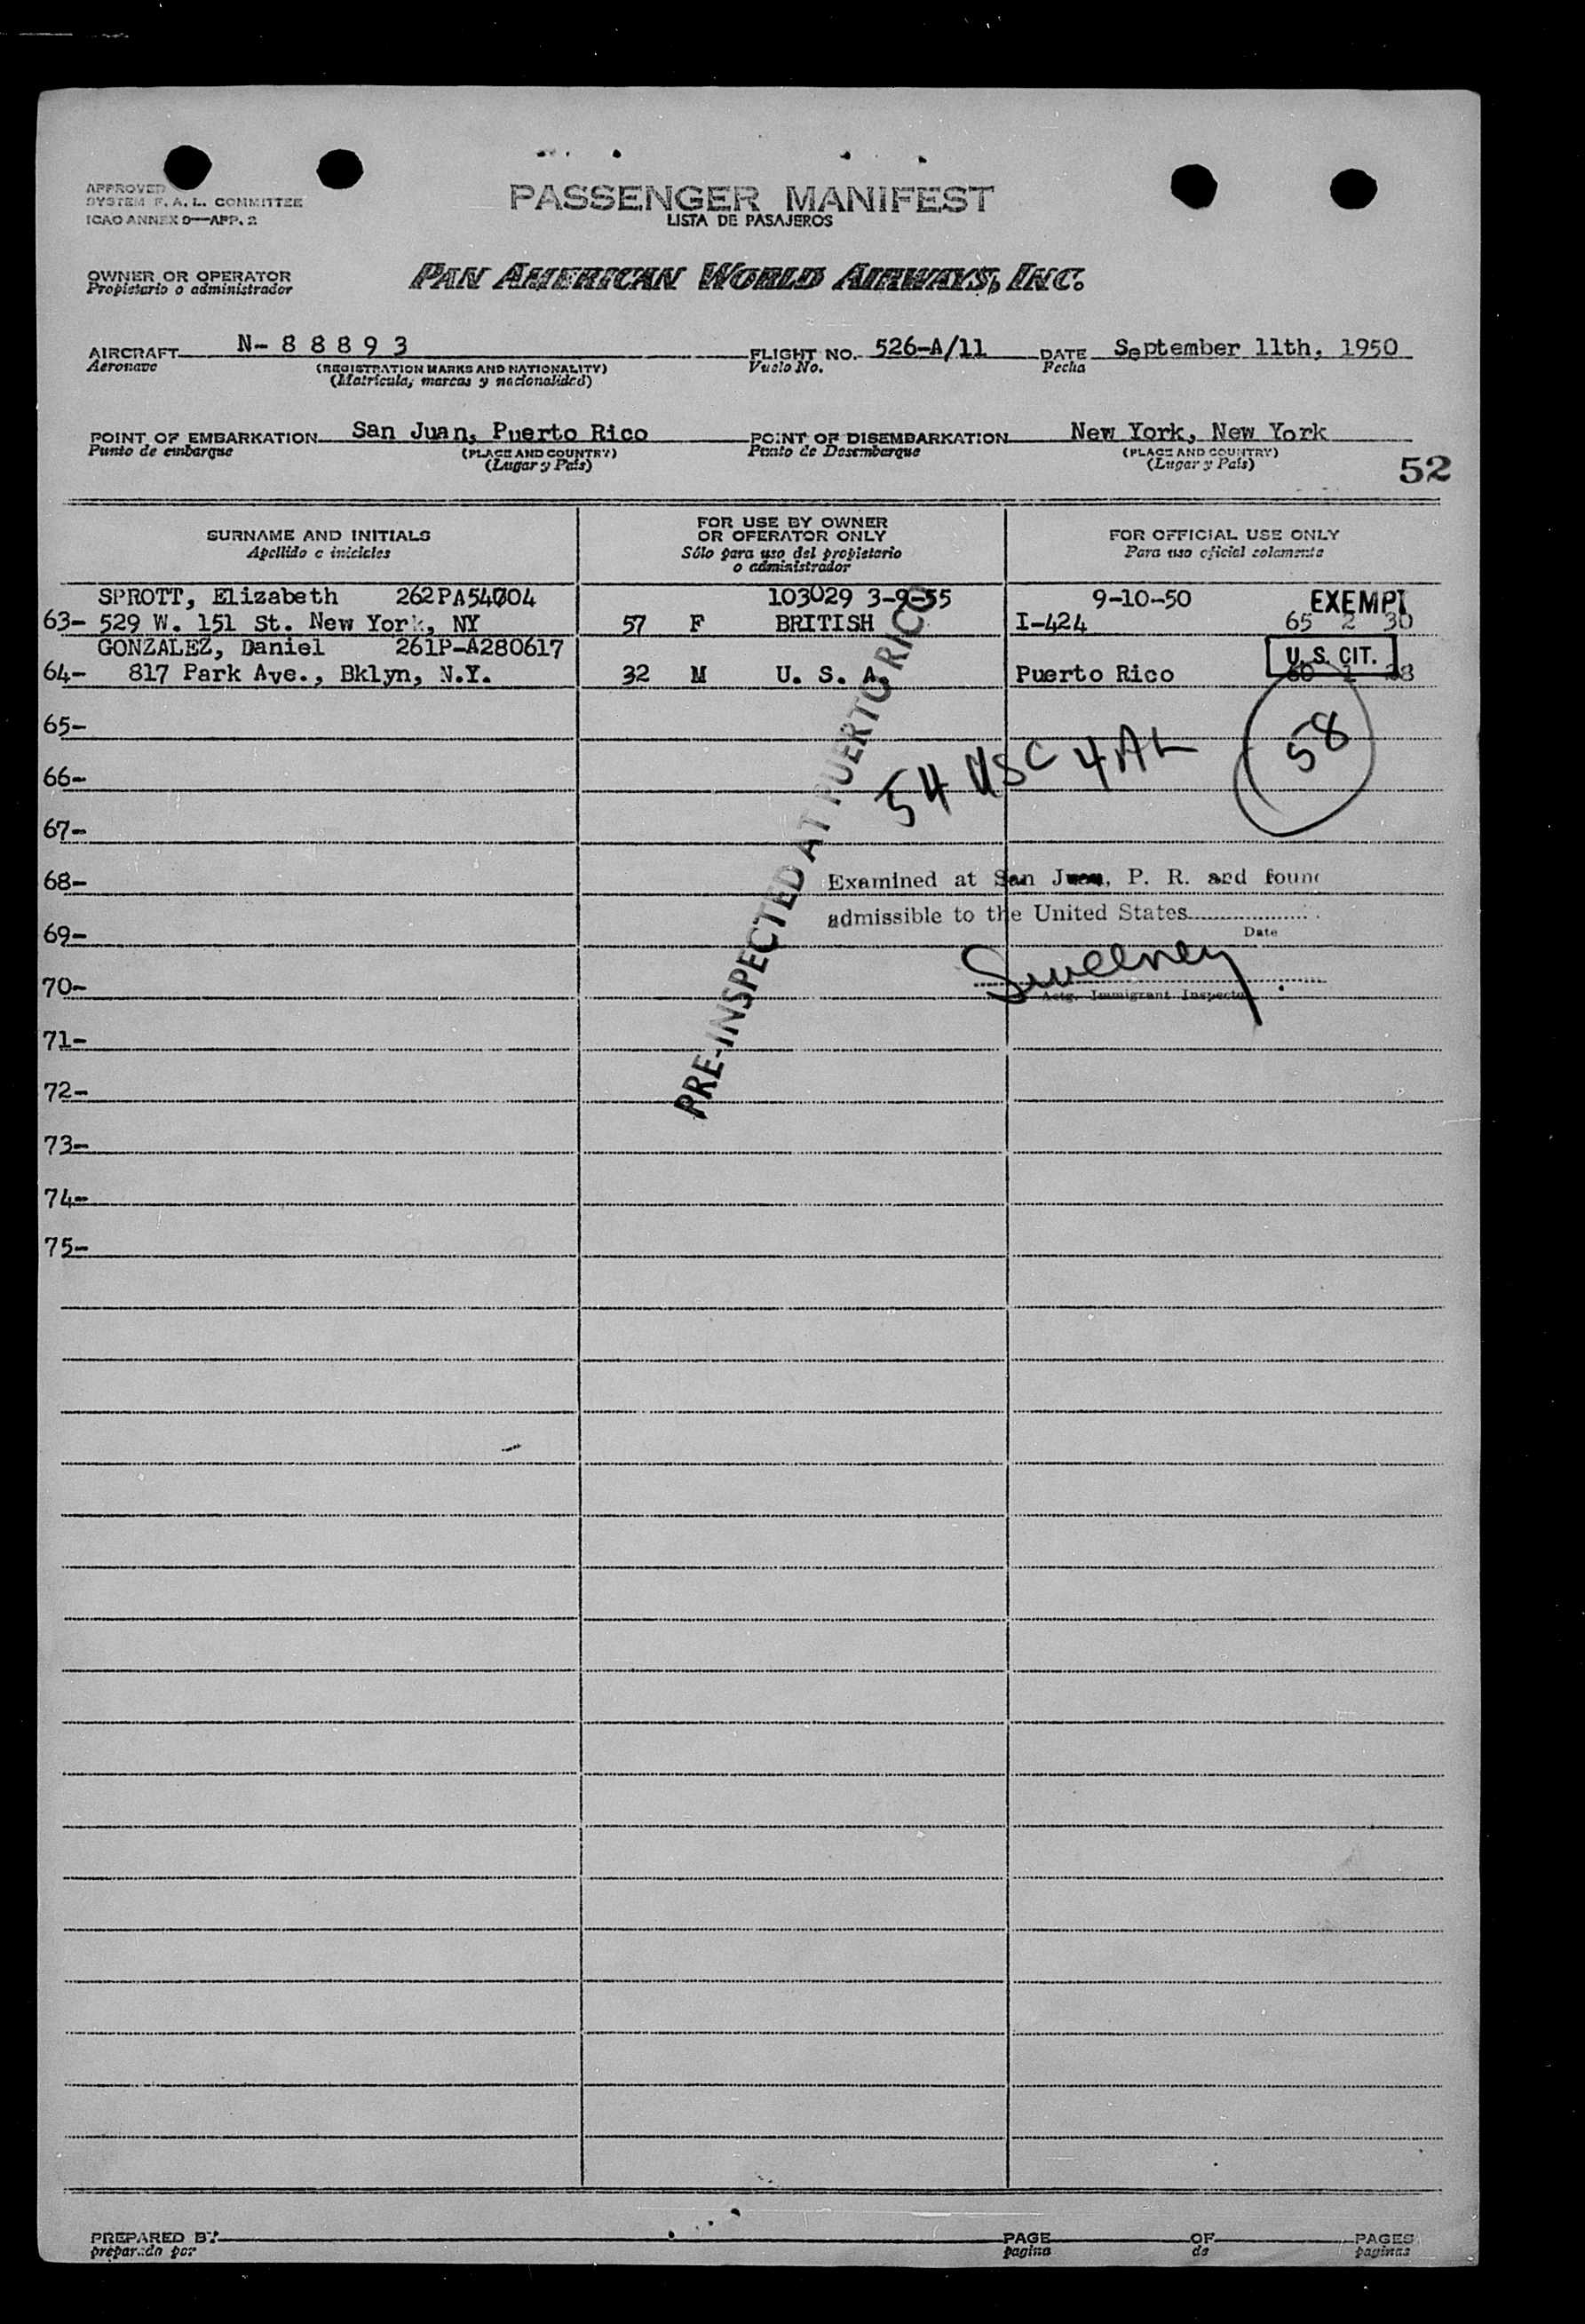 APPROVED
SYSTEM F. A. L. COMMITTEE
ICAO ANNEX 9—APP. 2
PASSENGER MANIFEST
LISTA DE PASAJEROS
OWNER OR OPERATOR
Propietario o administrador
PAN AMERICAN WORLD AIRWAYS, INC.
AIRCRAFT N- 8 8 8 9 3 FLIGHT NO. 526-A/11 DATE September 11th, 1950
Aeronave (REGISTRATION MARKS AND NATIONALITY) Vuelo No. Fecha
(Matricula, marcas y nacionalidad)
POINT OF EMBARKATION San Juan, Puerto Rico POINT OF DISEMBARKATION New York, New York
Punto de embarque (PLACE AND COUNTRY) Punto de Desembarque (PLACE AND COUNTRY)
(Lugar y País) (Lugar y País)
52
SURNAME AND INITIALS
Apellido e iniciales
FOR USE BY OWNER
OR OPERATOR ONLY
Sólo para uso del propietario
o administrador
FOR OFFICIAL USE ONLY
Para uso oficial solamente
SPROTT, Elizabeth 262PA54004 103029 3-9-55 9-10-50 EXEMPT
63- 529 W. 151 St. New York, NY 57 F BRITISH I-424 65 2 30
GONZALEZ, Daniel 261P-A280617 U.S. CIT.
64- 817 Park Ave., Bklyn, N.Y. 32 M U. S. A. Puerto Rico 60 1 28
65-
54 USC 4 AL 58
66-
67-
68-
Examined at San Juan, P. R. and found
admissible to the United States
Date
69-
Sweeney
70-
Actg. Immigrant Inspector
PRE-INSPECTED AT PUERTO RICO
71-
72-
73-
74-
75-
PREPARED BY PAGE OF PAGES
preparado por pagina de paginas